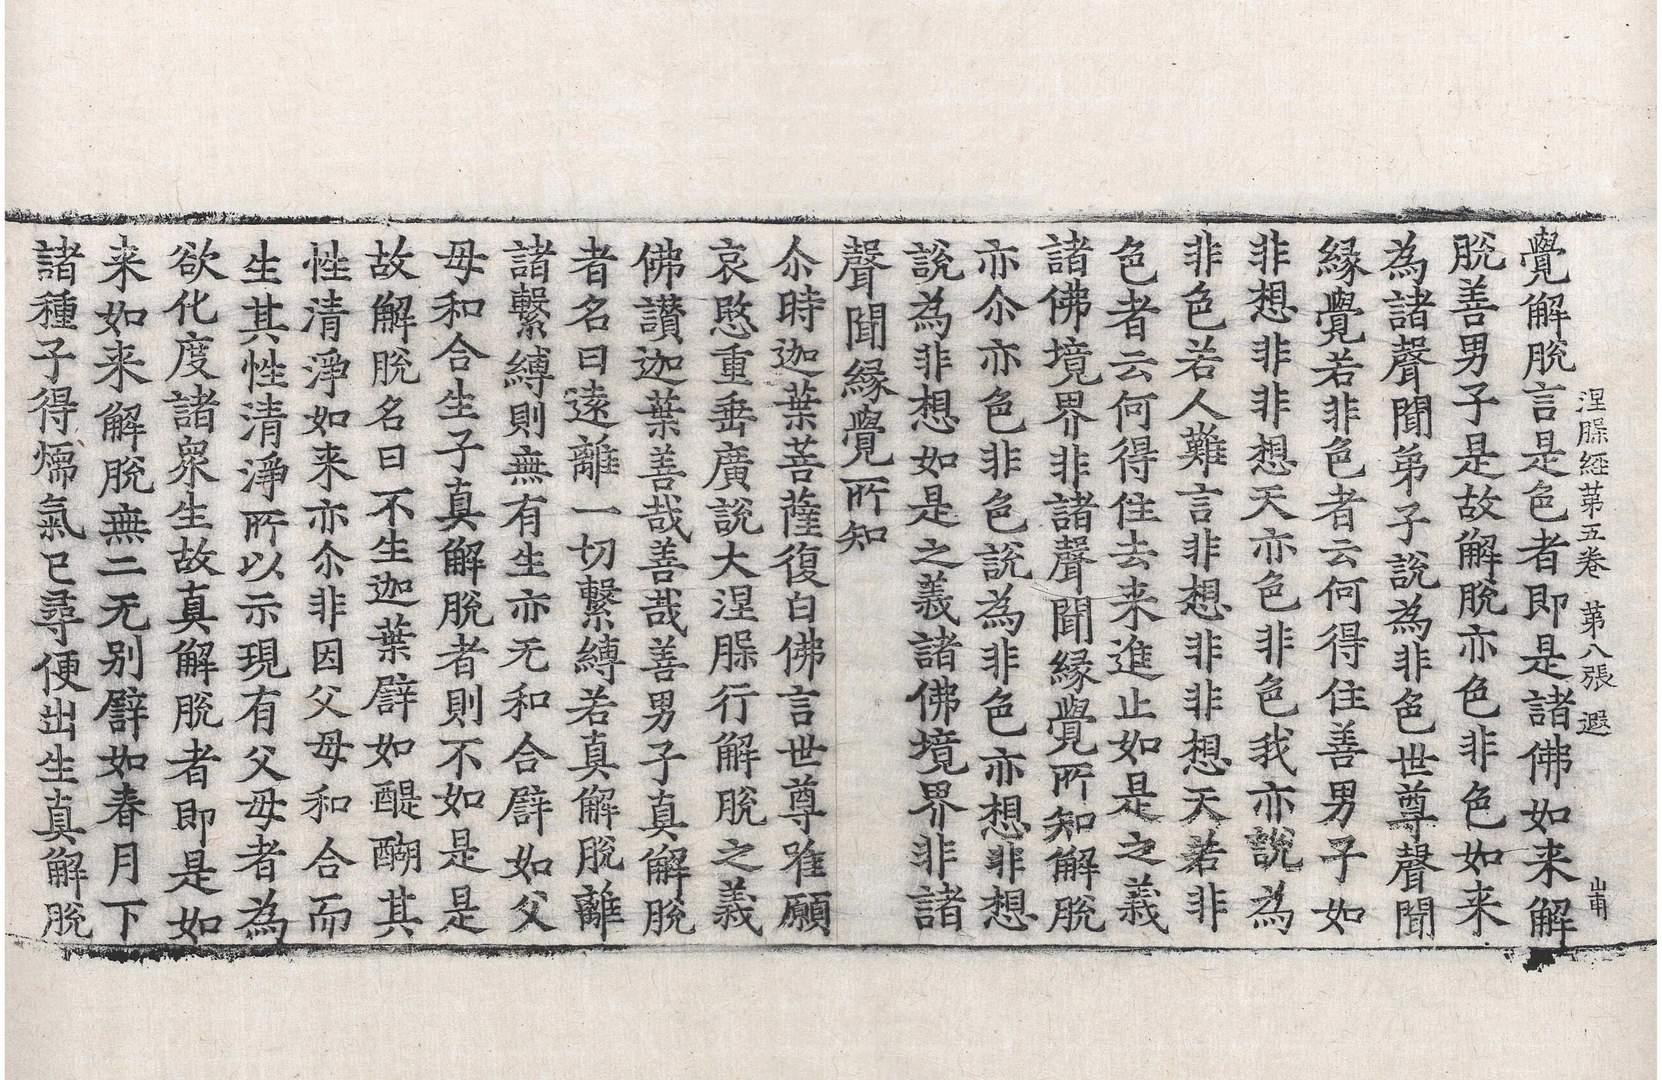 涅槃経第五卷 第八張 遐
覺解脫言是色者即是諸佛如来解
脫善男子是故解脫亦色非色如来
為諸聲聞弟子說為非色世尊聲聞
縁覺若非色者云何得住善男子如
非想非非想天亦色非色我亦說為
非色若人難言非想非非想天若非
色者云何得住去来進止如是之義
諸佛境界非諸聲聞縁覺所知解脫
亦尒亦色非色說為非色亦想非想
說為非想如是之義諸佛境界非諸
聲聞縁覺所知
尒時迦葉菩薩復白佛言世尊唯願
哀愍重垂廣說大涅槃行解脫之義
佛讃迦葉善哉善哉善男子真解脫
者名曰遠離一切繫縛若真解脫離
諸繫縛則無有生亦无和合譬如父
母和合生子真解脫者則不如是是
故解脫名曰不生迦葉譬如醍醐其
性清淨如来亦尒非因父母和合而
生其性清淨所以示現有父母者為
欲化度諸衆生故真解脫者即是如
来如来解脫無二无别譬如春月下
諸種子得煗氣已尋便出生真解脫